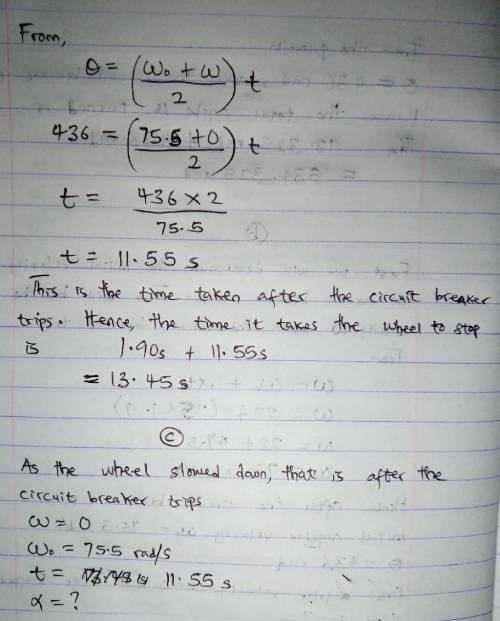 From,
θ = (ω₀ + ω / 2) t
436 = (75.5 + 0 / 2) t
t = 436 × 2 / 75.5
t = 11.55 s
This is the time taken after the circuit breaker
trips. Hence, the time it takes the wheel to stop
is 1.90s + 11.55s
= 13.45 s
(c)
As the wheel slowed down, that is after the
circuit breaker trips
ω = 0
ω₀ = 75.5 rad/s
t = 11.55 s
α = ?